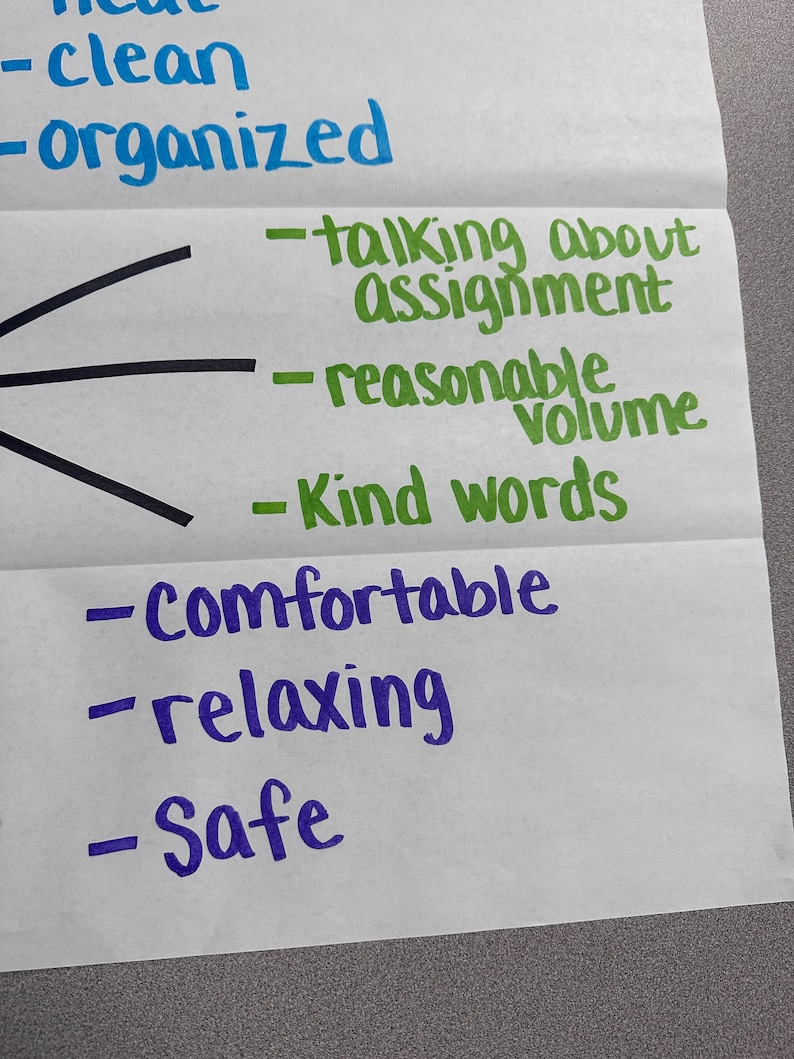 neat
- clean
- organized
- talking about
assignment
- reasonable
volume
- Kind words
- Comfortable
- relaxing
- Safe